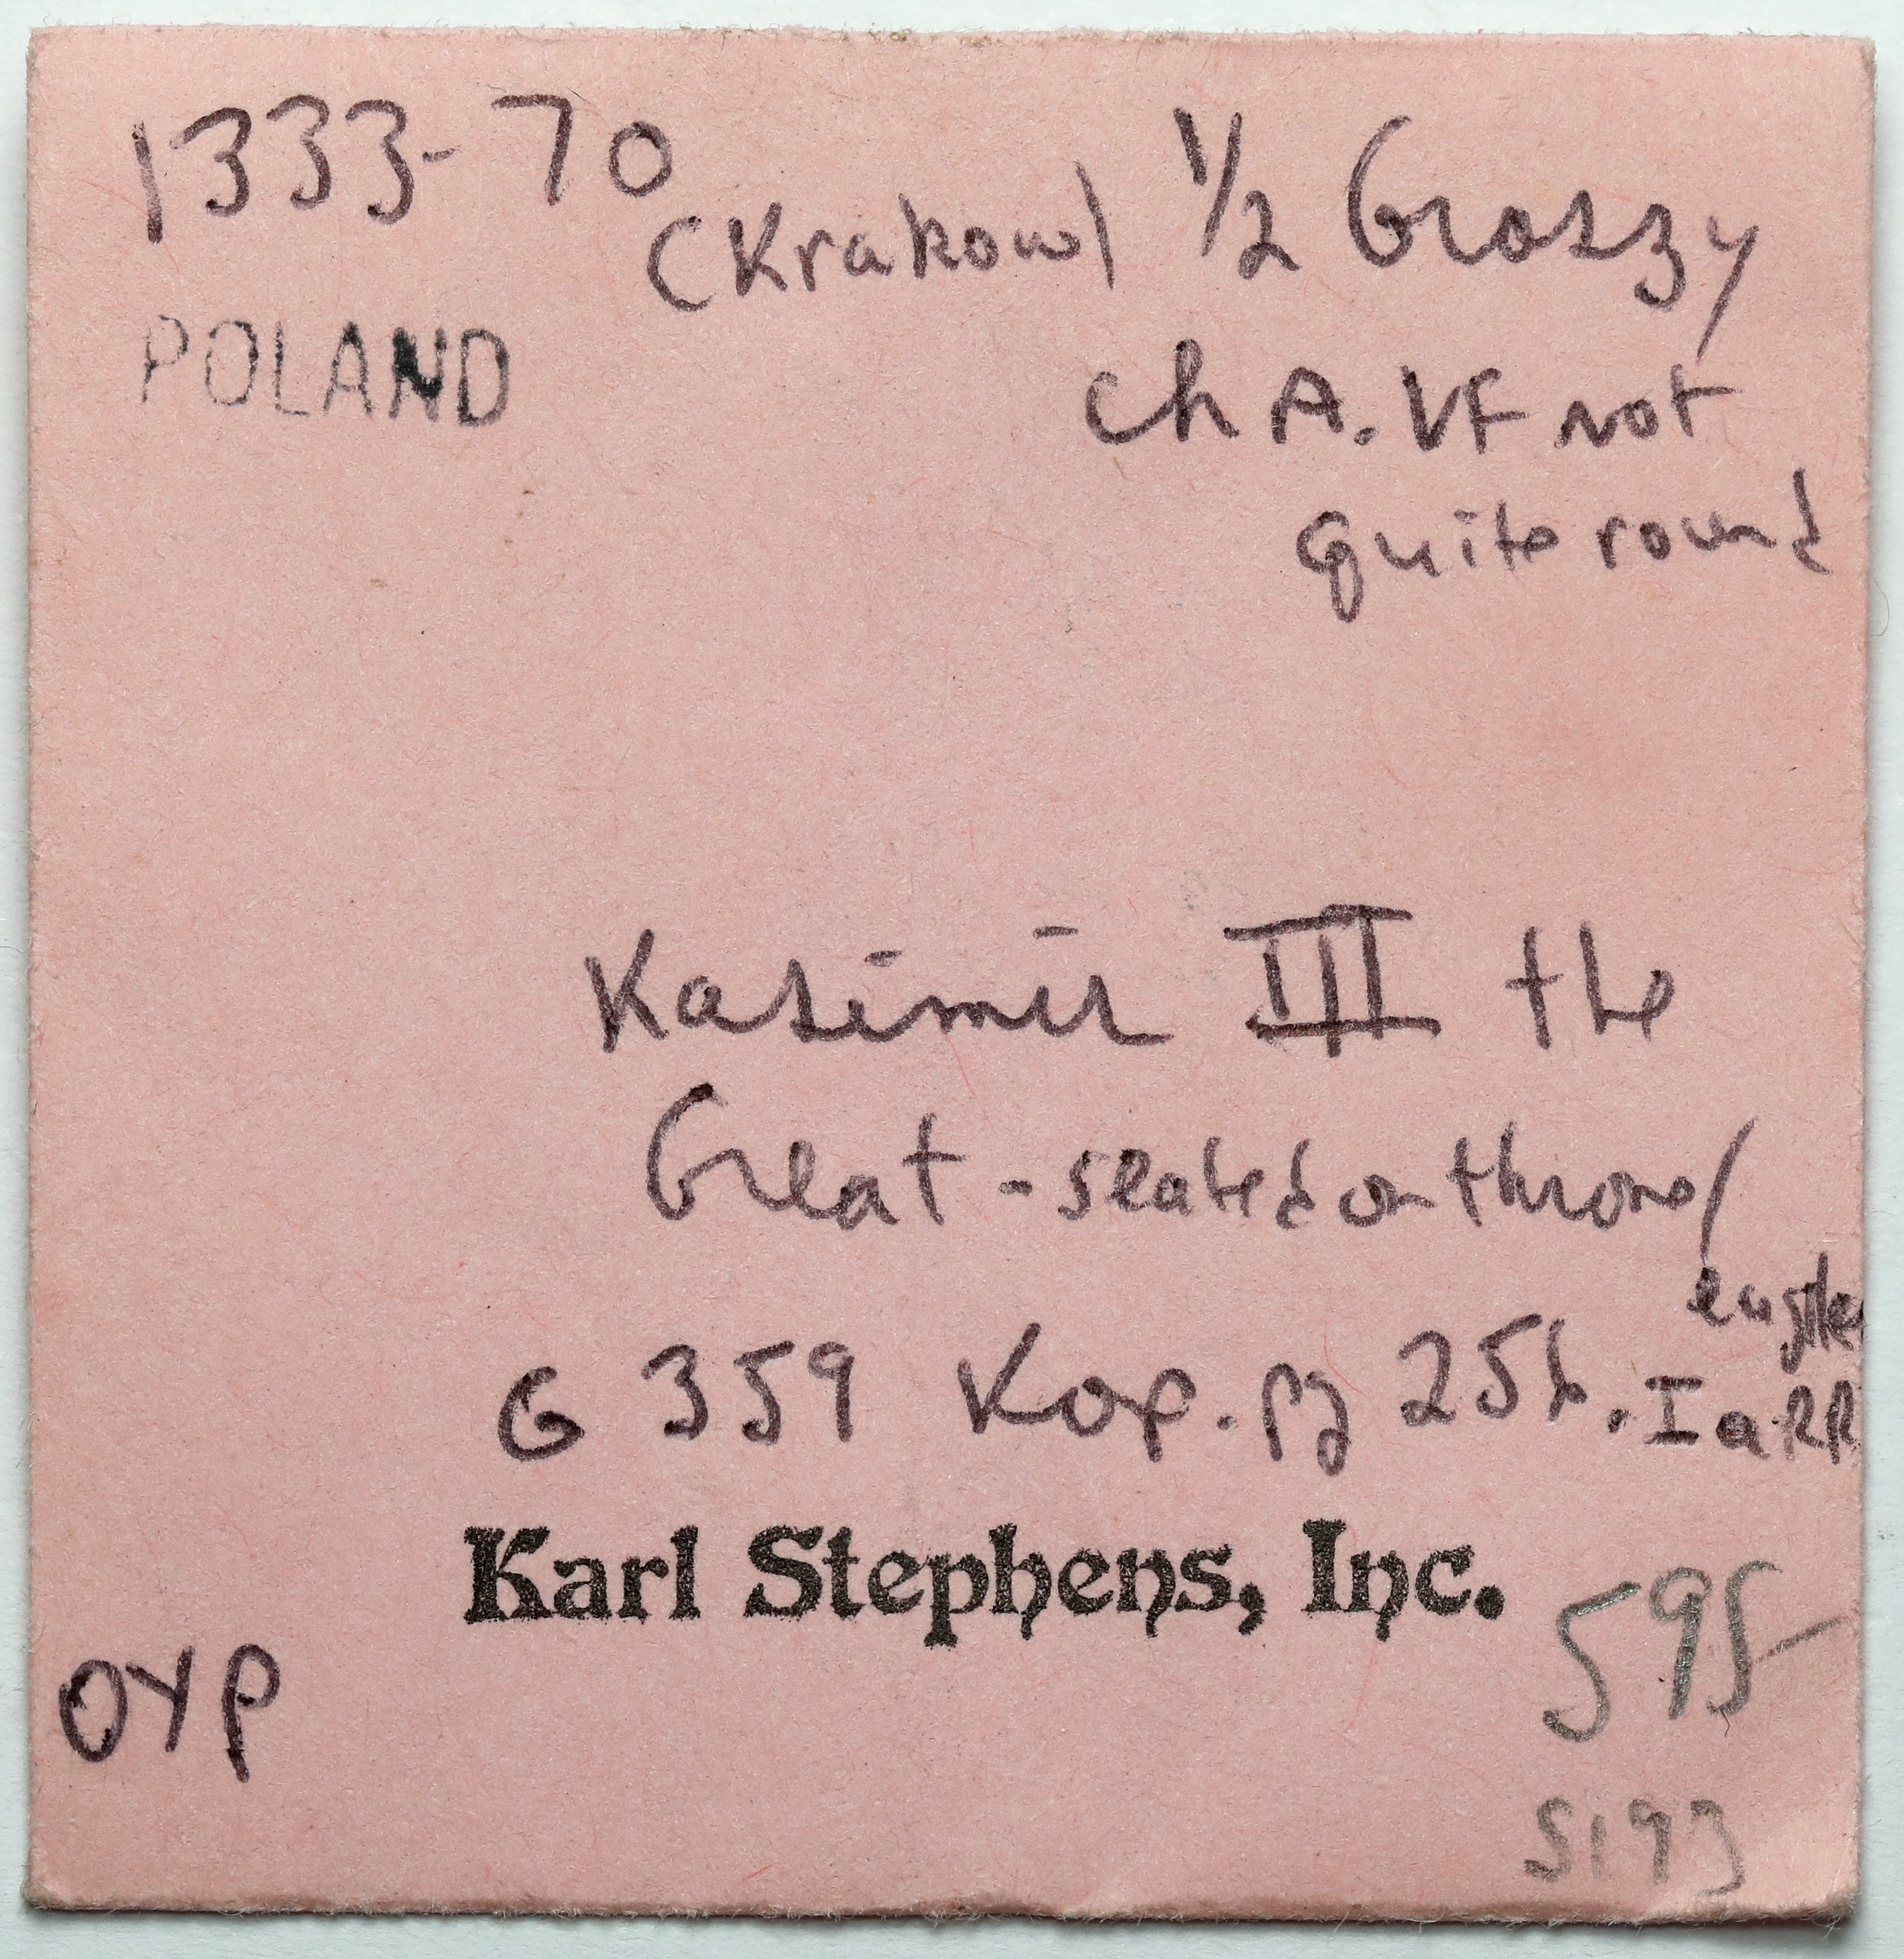 1333-70 (Krakow) 1/2 Groszy
POLAND
Ch A. VF not
quite round
Kasimir III the
Great - seated on throne/
G 359 Kop. pg 25b. I a RR
Karl Stephens, Inc.
595-
OYP
5193